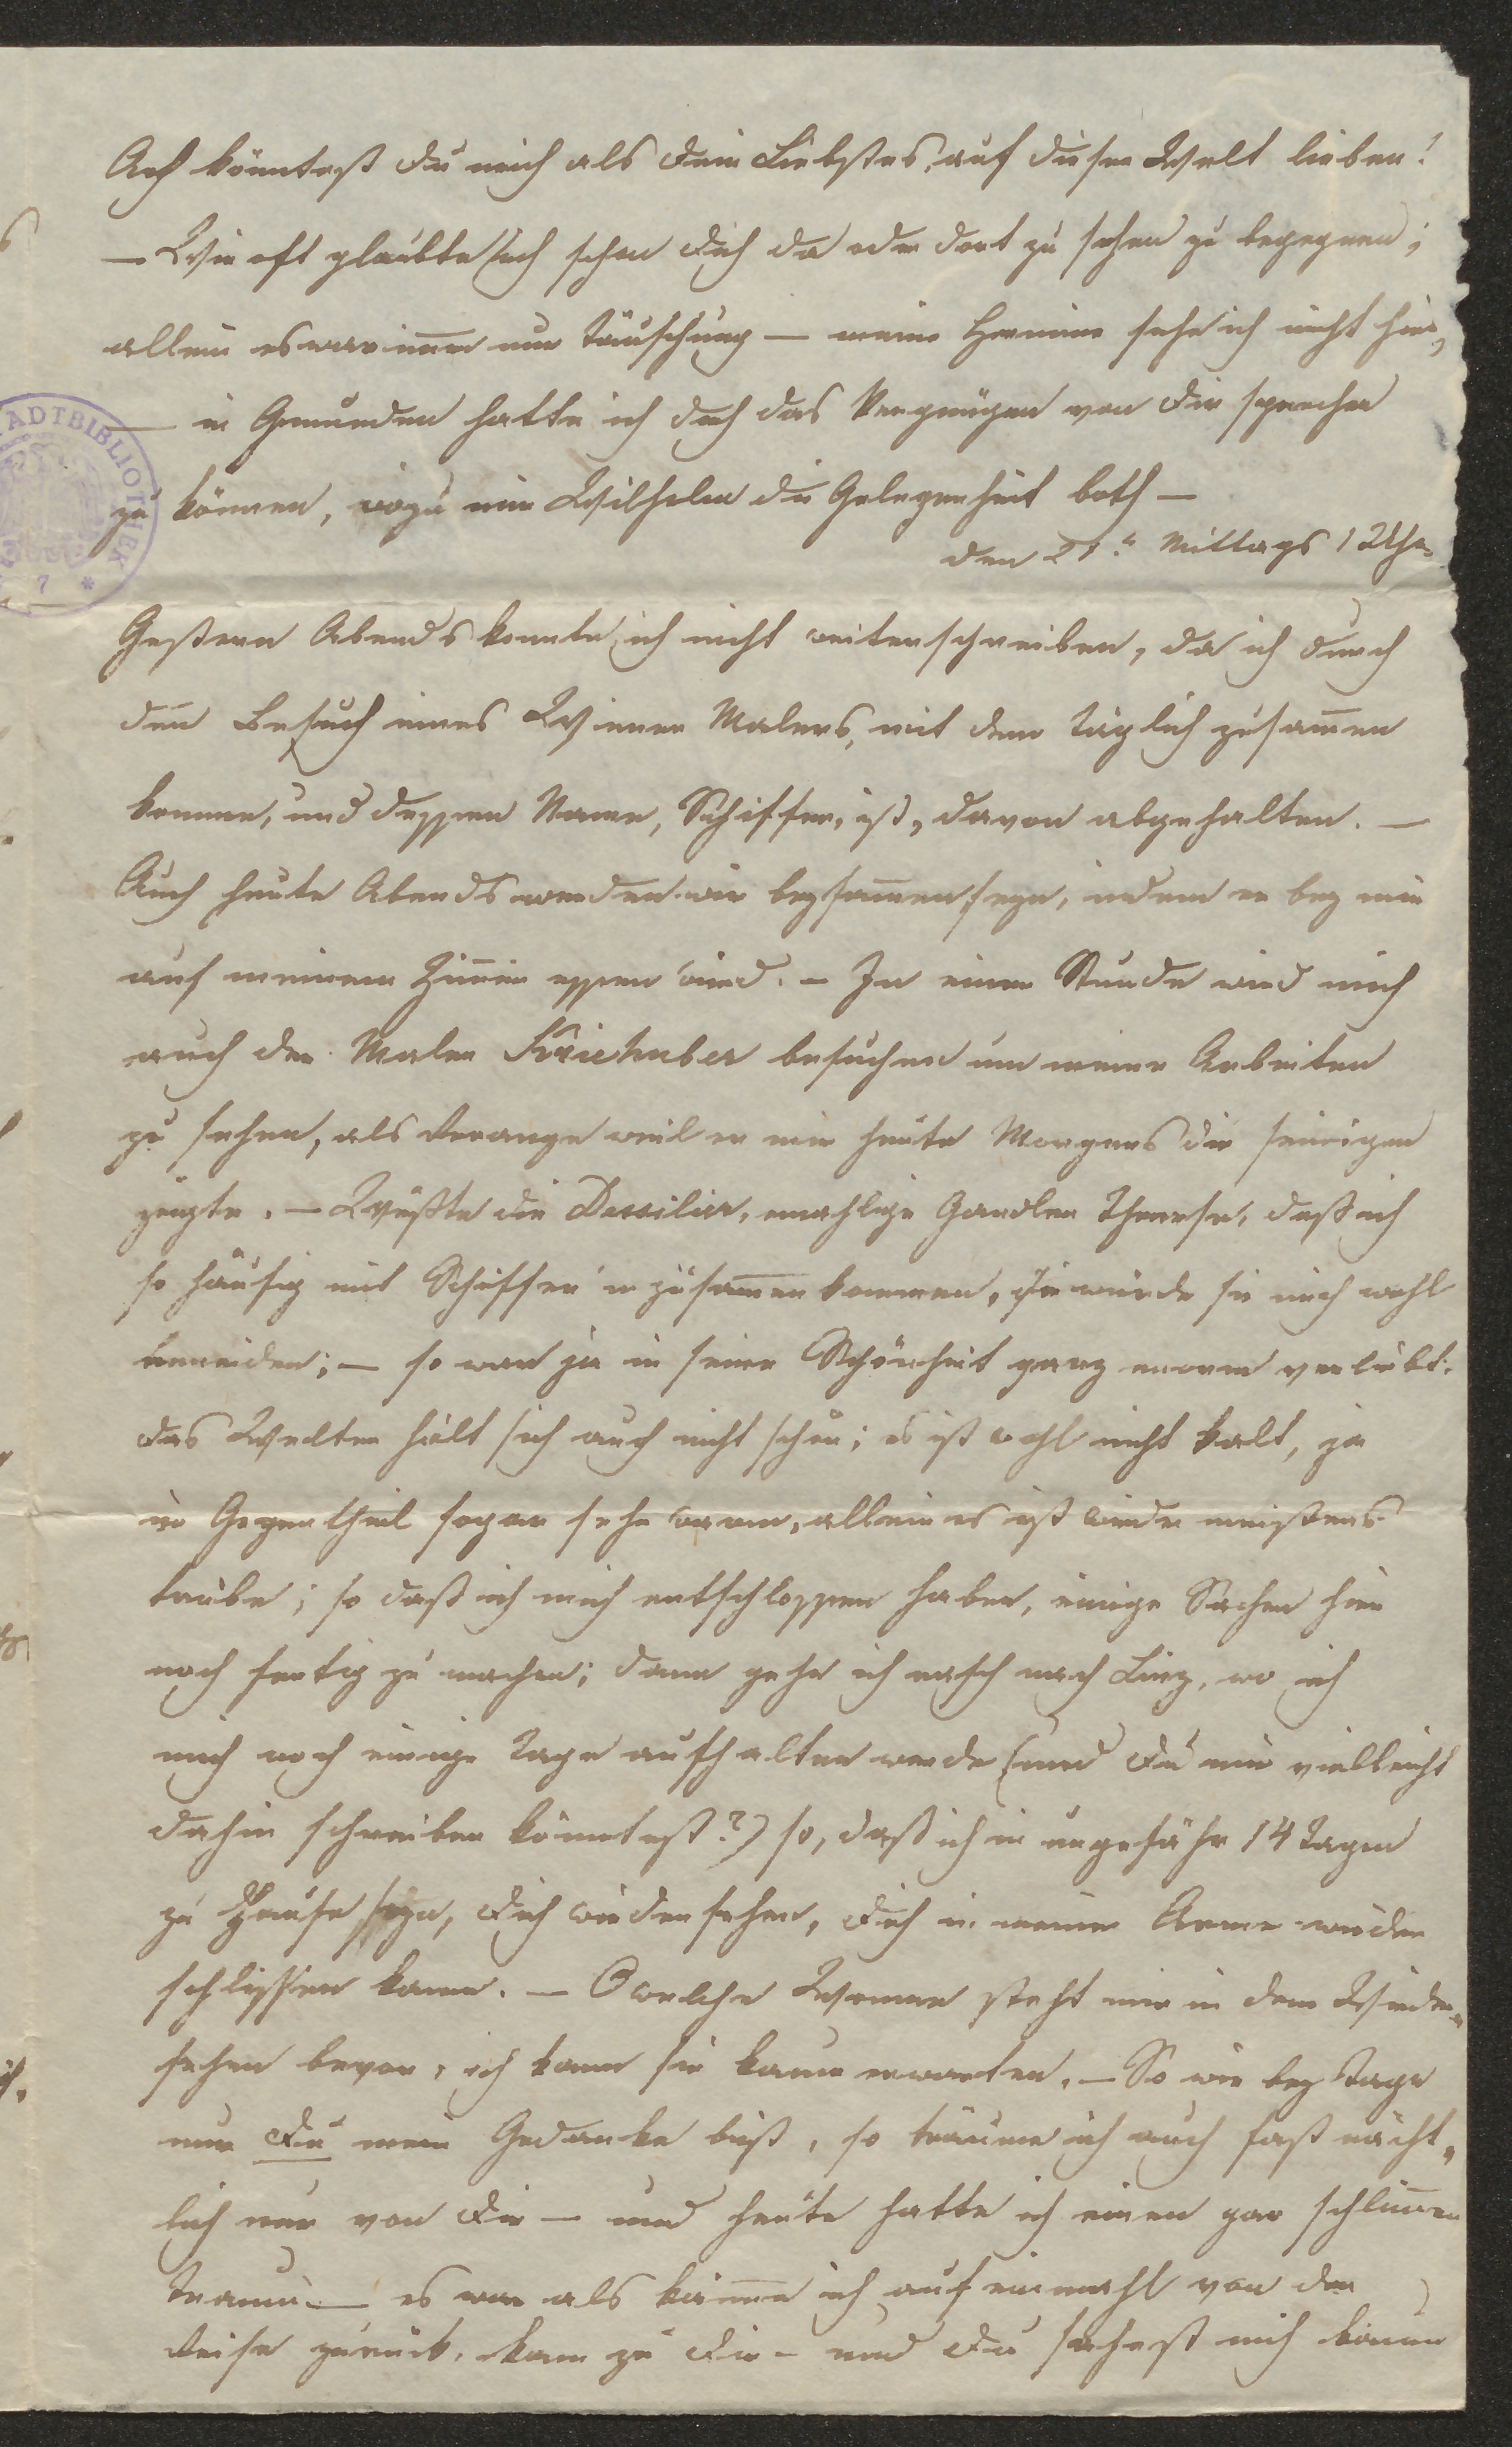 Ach könntest Du mich als Dein Liebstes, auf dieser Welt lieben!
— Wie oft glaubte ich schon Dich da oder dort zu sehen zu begegnen;
allein es war immer nur Täuschung — meine Hermine sehe ich nicht hier,
— in Gmunden hatte ich doch das Vergnügen von Dir sprechen
zu können, wozu mir Wilhelm die Gelegenheit both —
den 21t Mittags 1 Uhr.
Gestern Abends konnte ich nicht weiterschreiben, da ich durch
den Besuch eines Wiener Malers, mit dem täglich zusam̅en
komme, und dessen Name, Schiffer, ist, davon abgehalten. —
Auch heute Abends werden wir beysam̅en seyn, indem er bey mir
auf meinem Zim̅er essen wird. — In einer Stunde wird mich
auch der Maler Kriehuber besuchen um meine Arbeiten
zu sehen, als weil er mir heute Morgens die seinigen
zeigte. — Wüßte die Therese, daß ich
so häufig mit Schiffer'n zusam̅en kom̅en, wie würde sie mich wohl
beneiden; — sie war ja in seine Schönheit ganz enorm verliebt.
Das Wetter hält sich auch nicht schön; es ist wohl nicht kalt, ja
im Gegentheil sogar sehr warm, allein es ist wieder meistens
trübe; so daß ich mich entschlossen habe, einige Sachen hier
noch fertig zu machen; dann gehe ich rasch nach Linz, wo ich
mich noch einige Tage aufhalten werde (und Du mir vielleicht
dahin schreiben könntest?) so, daß ich in ungefähr 14 Tagen
zu Hause seyn, Dich wiedersehen, Dich in meine Arme wieder
schließen kann. — O welche Wonne steht mir in dem Wieder-
sehen bevor, ich kann sie kaum erwarten. — So wie bey Tage
nur Du mein Gedanke bist, so träume ich auch fast nächt-
lich nur von Dir — und heute hatte ich einen gar schlim̅en
Traum — es war als käme ich auf einmahl von der
Reise zurück, kam zu Dir — und Du sahest mich kaum
ADTBIBLIOTHEK
7 *